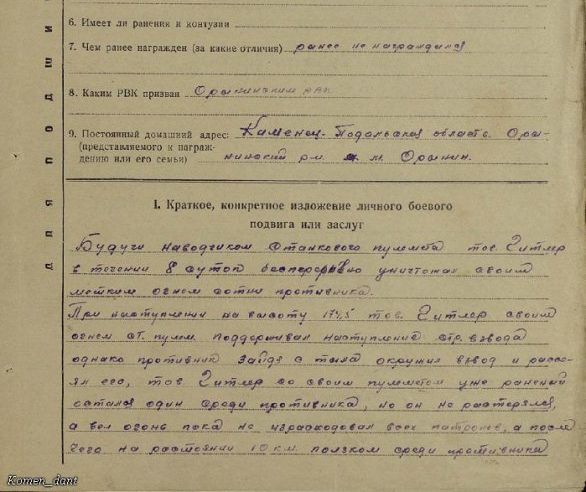 6. Имеет ли ранения и контузии
7. Чем ранее награжден (за какие отличия) ранее не награждался
8. Каким РВК призван Орынинским рвк
9. Постоянный домашний адрес: Каменец-Подольская область. Оры-
(представляемого к награж- нинский р-н м. Орынин.
дению или его семьи)
I. Краткое, конкретное изложение личного боевого
подвига или заслуг
Будучи наводчиком станкового пулемета тов. Гитлер
в течении 8 суток беспрерывно уничтожал своим
метким огнем сотни противника.
При наступлении на высоту 174,5 тов. Гитлер своим
огнем ст. пулем. поддерживал наступление стр. взвода
однако противник зайдя с тыла окружил взвод и рассе-
ял его, тов. Гитлер со своим пулеметом уже раненый
остался один среди противника, но он не растерялся,
а вел огонь пока не израсходовал всех патронов, а после
чего на расстоянии 10 км. ползком среди противника
для подшив
Komen_dant